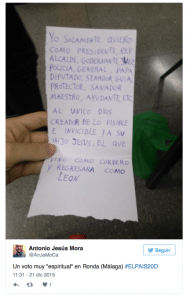 YO SOLAMENTE QUIERO
COMO PRESIDENTE, REY
ALCALDE, GOBERNANTE, JUEZ
POLICIA, GENERAL, PAPA
DIPUTADO, SENADOR, GUIA,
PROTECTOR, SANADOR
MAESTRO, AYUDANTE, ETC
AL UNICO DIOS
CREADOR DE LO VISIBLE
E INVICIBLE YA SU
HIJO JESUS, EL QUE
VINO COMO CORDERO
Y REGRESARA COMO
LEON
Antonio Jesús Mora
@AruleMoCa
Seguir
Un voto muy "espiritual" en Ronda (Málaga) #ELPAIS20D
11:31 - 21 dic 2015